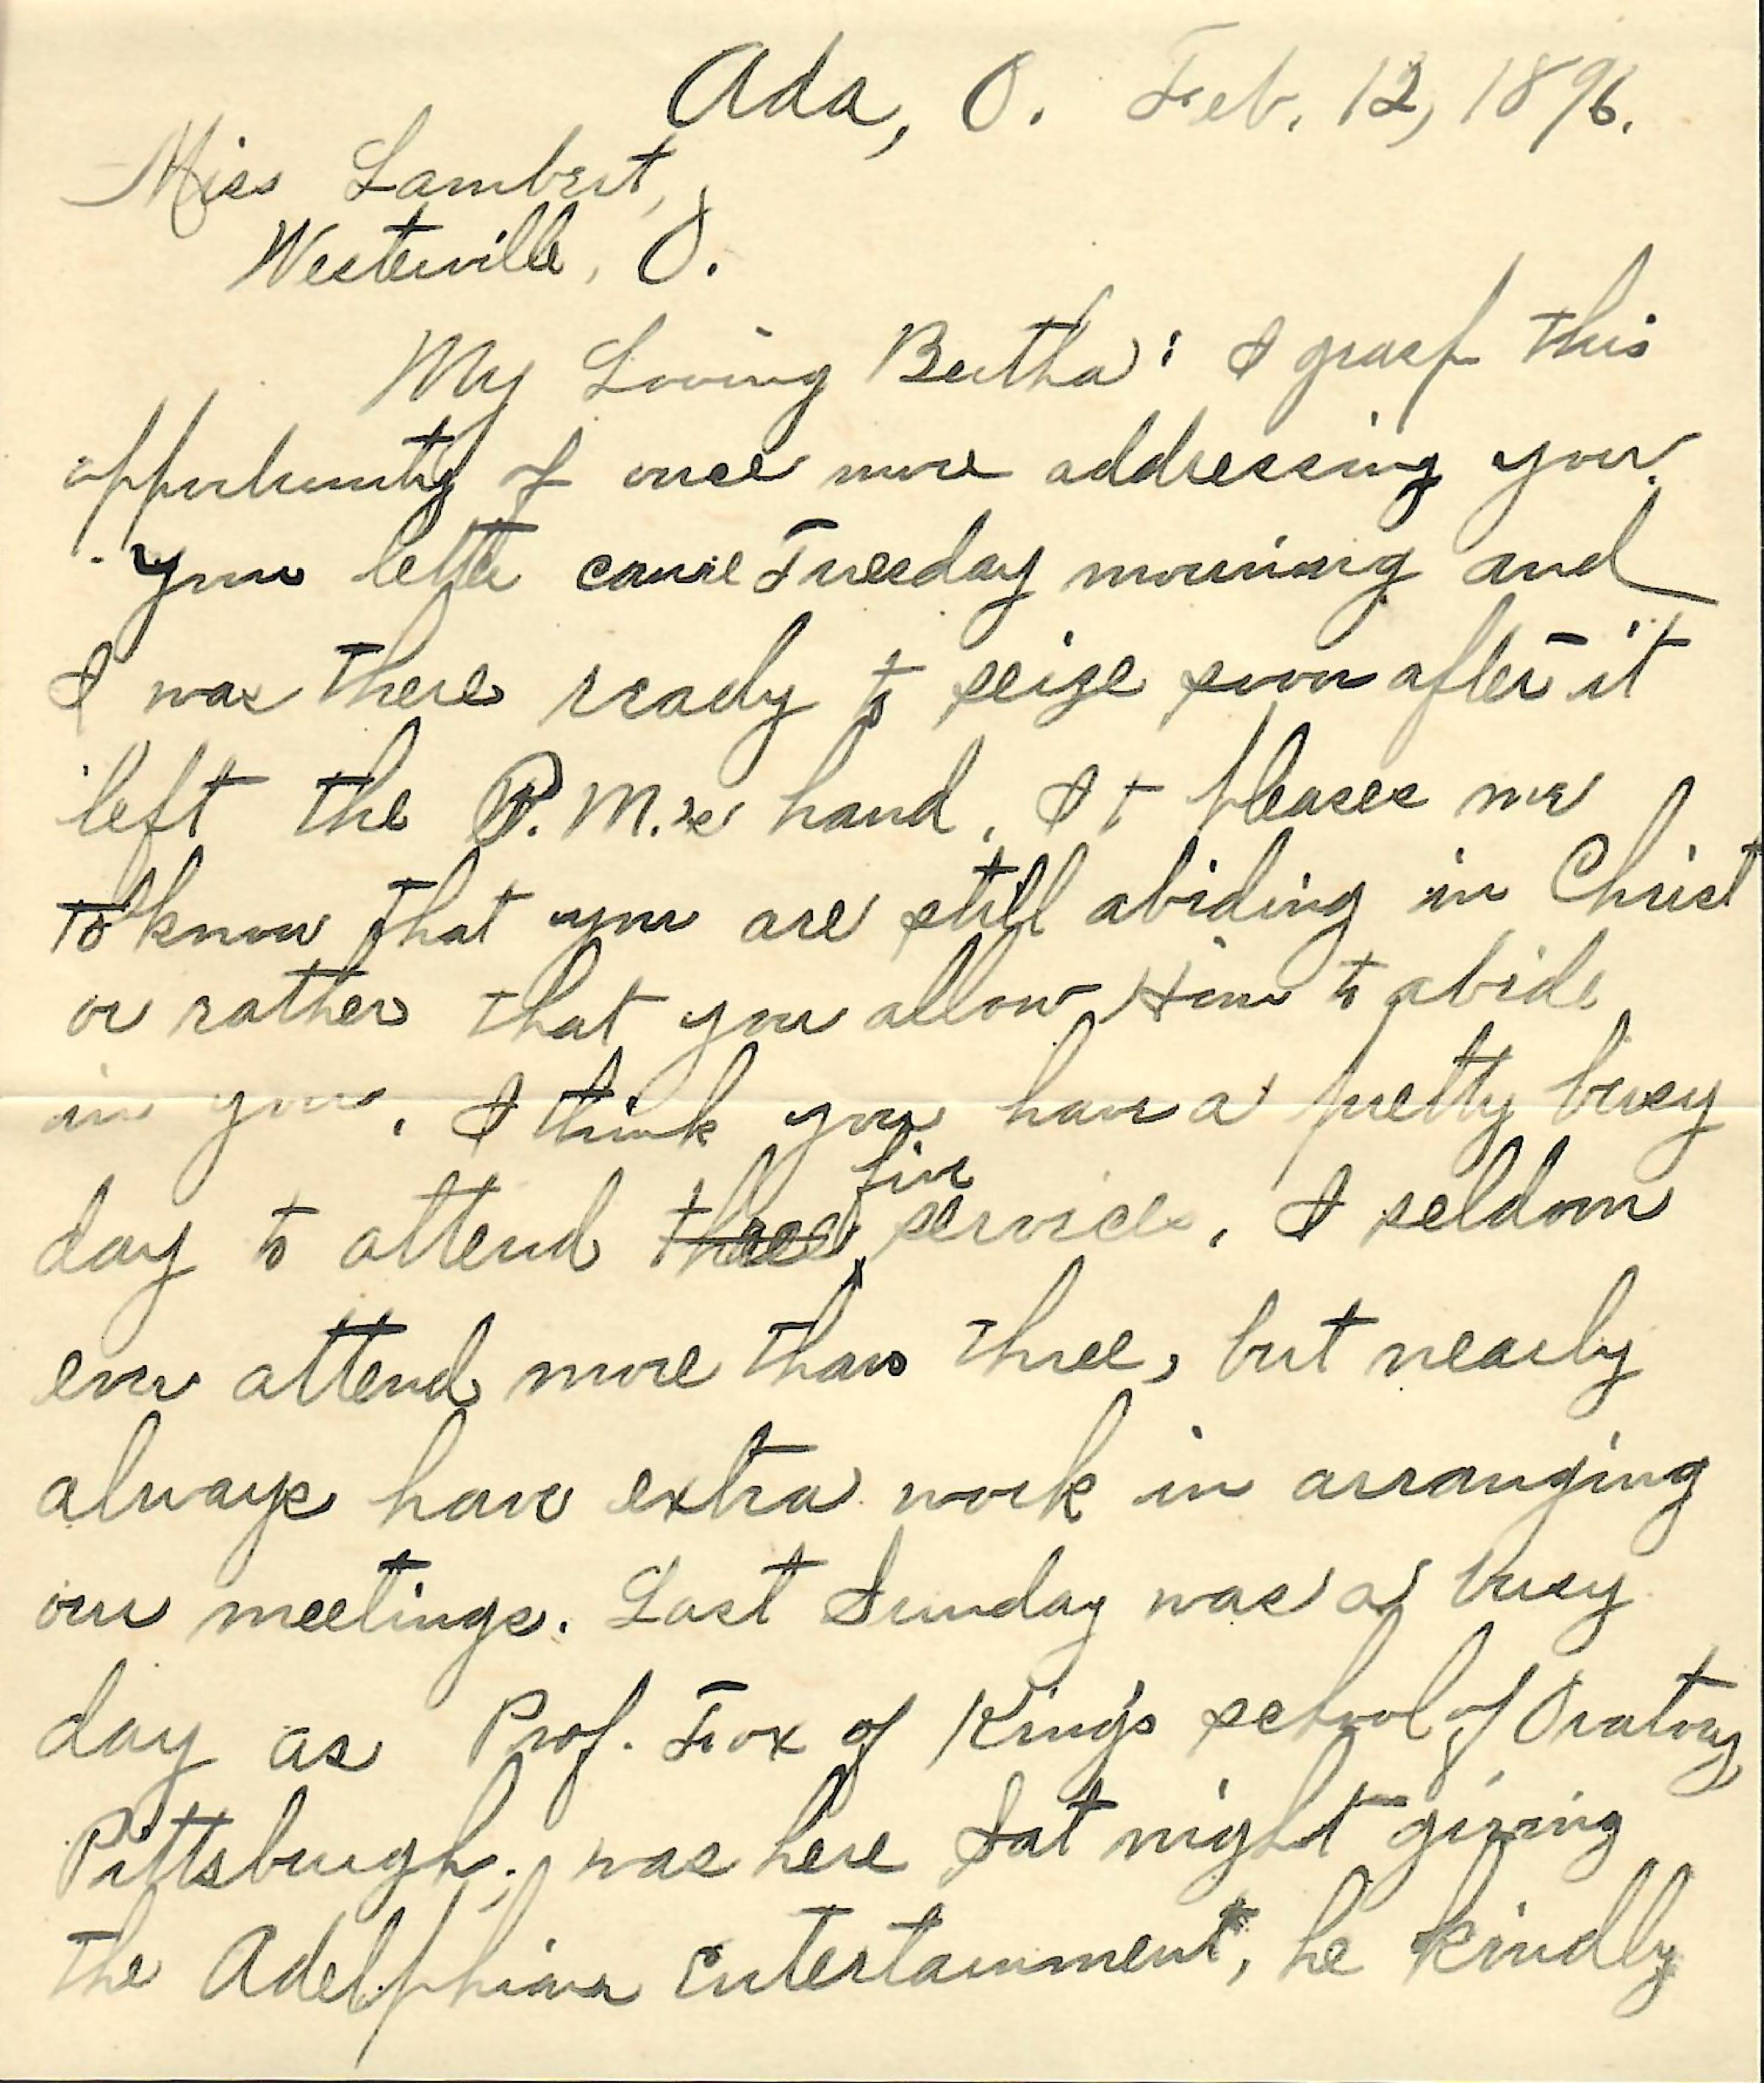 Ada, O. Feb. 12, 1896.
Miss Lambert,
Westerville, O.
My Loving Bertha: I grasp this
opportunity of once more addressing you.
Your letter came Tuesday morning and
I was there ready to seize soon after it
left the P.M.'s hand. It pleases me
to know that you are still abiding in Christ
or rather that you allow Him to abide
in you. I think you have a pretty busy
day to attend three five services. I seldom
ever attend more than three, but nearly
always have extra work in arranging
our meetings. Last Sunday was a busy
day as Prof. Fox of King's school of Oratory,
Pittsburgh, was here Sat night giving
the Adelphian Entertainment, he kindly